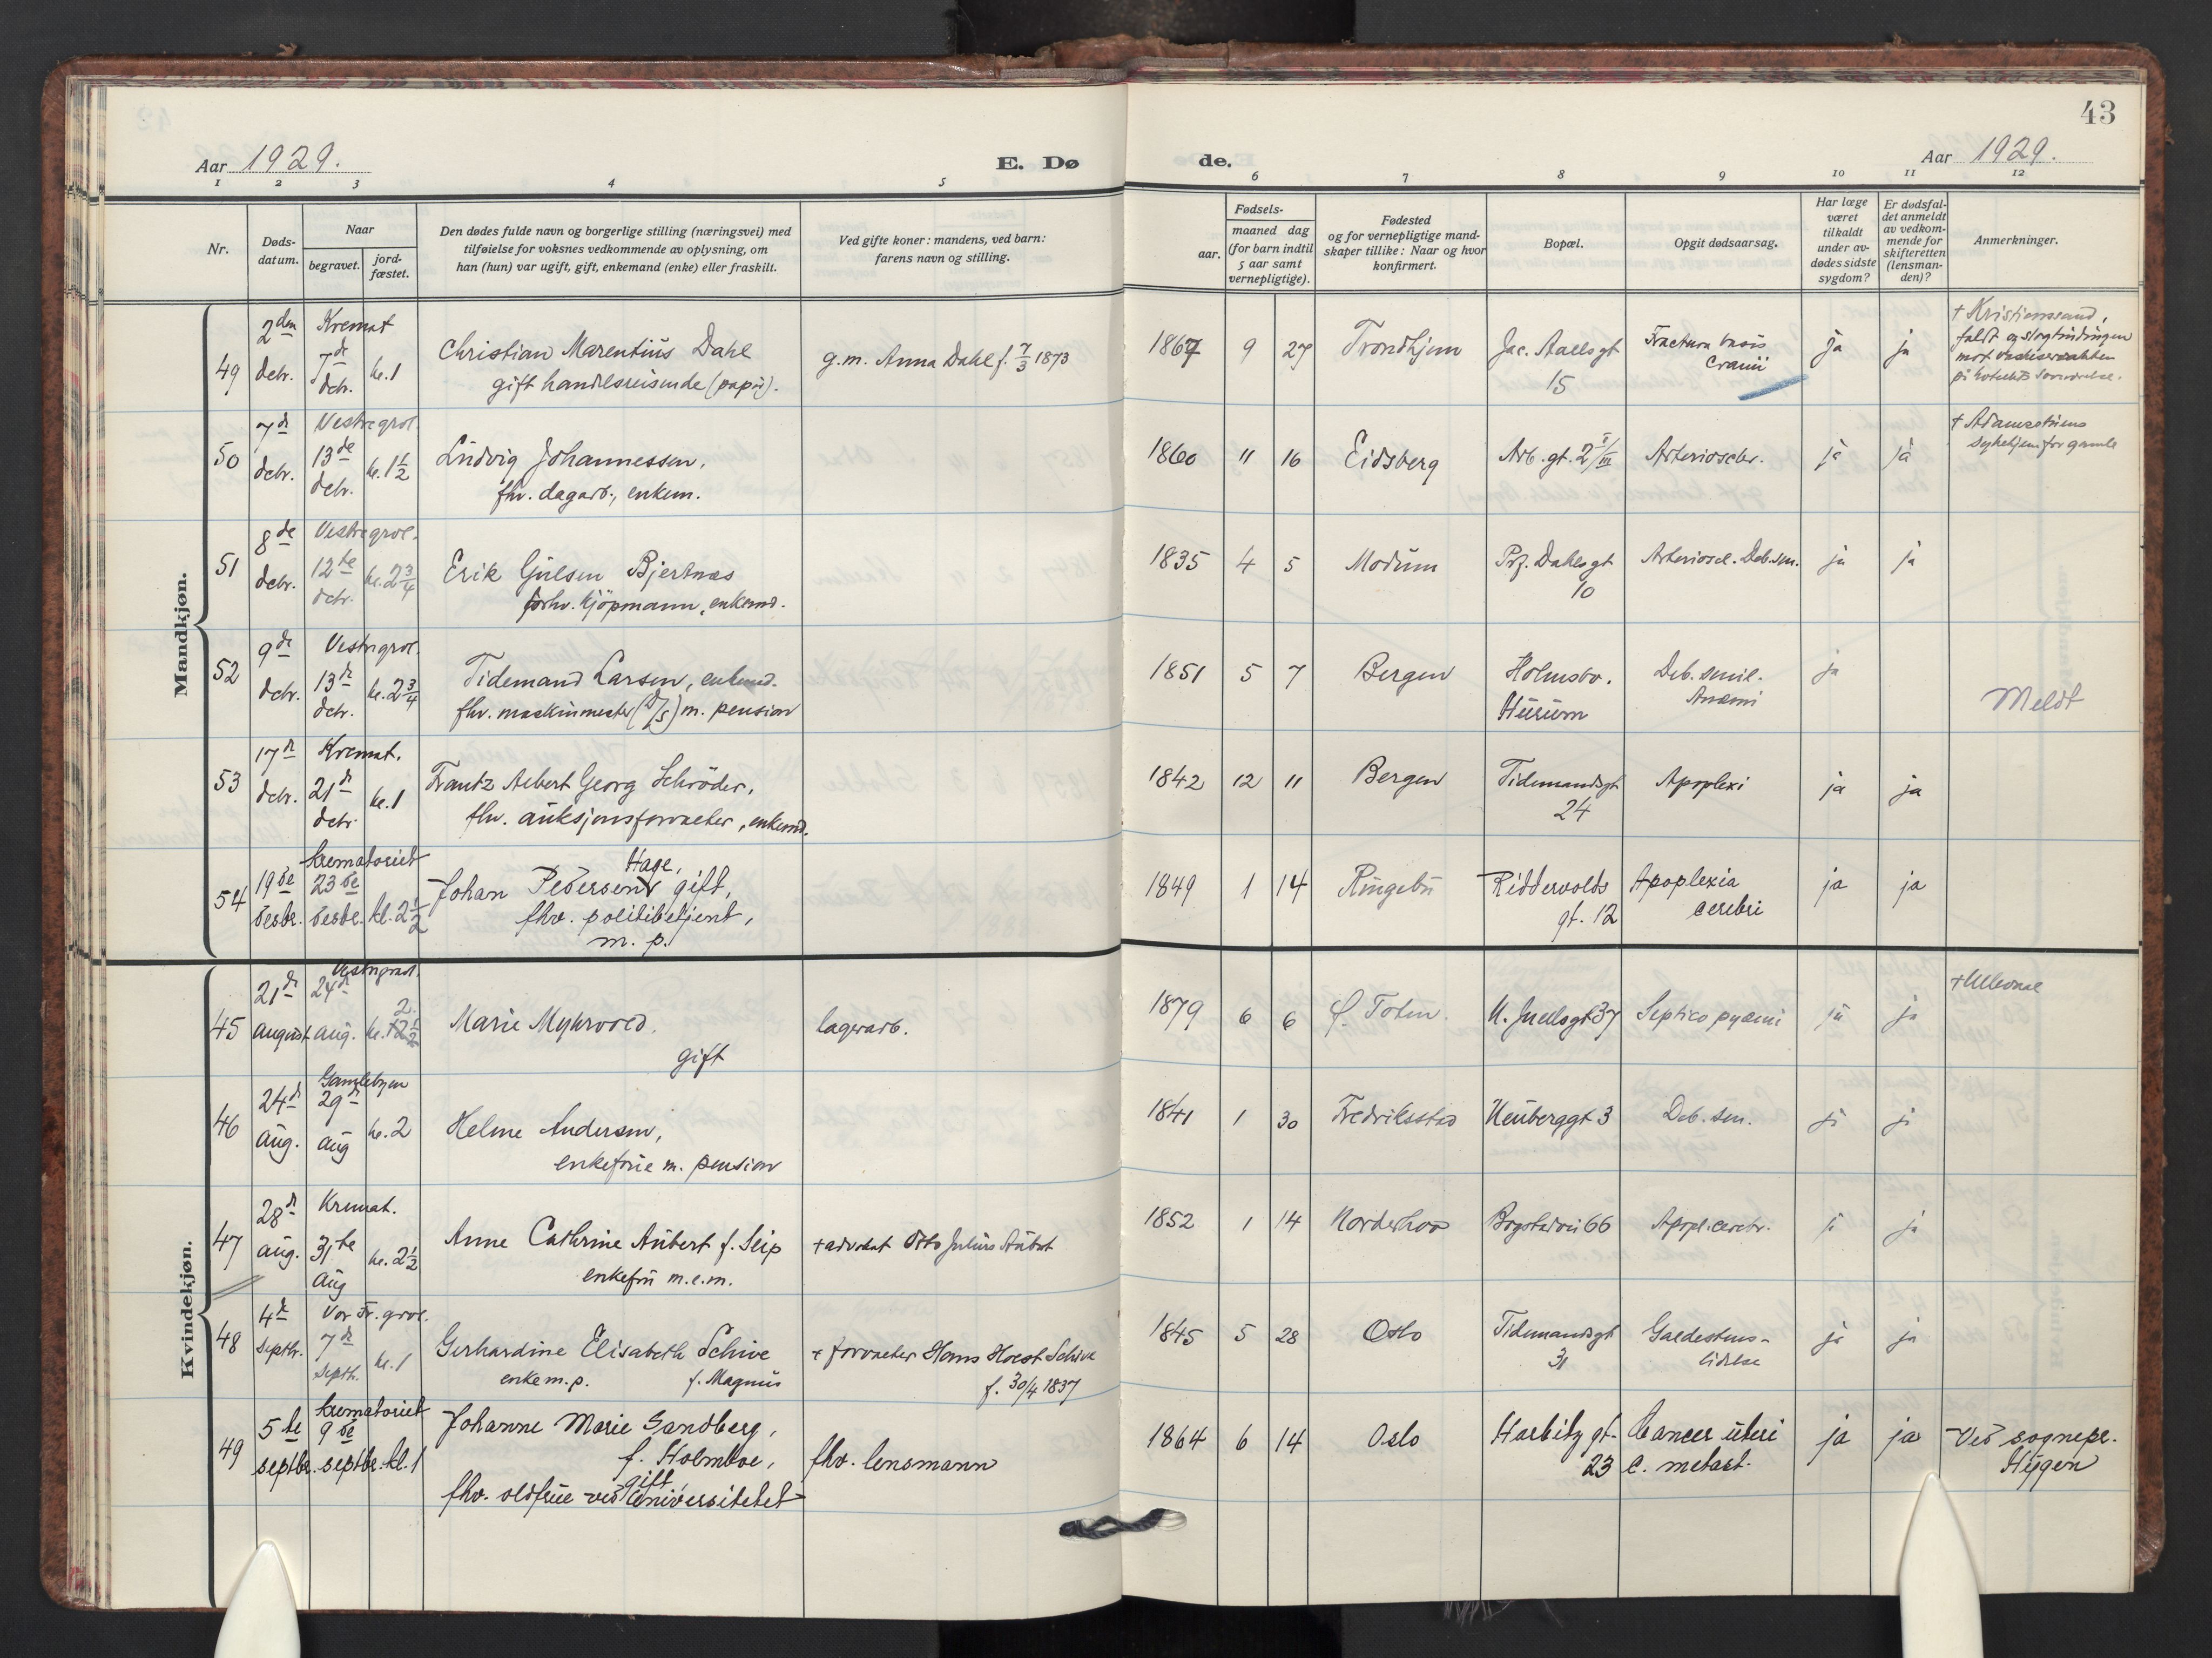 43
Aar 1929.
E. Dø
de.
Aar 1929.
1 2 3 4 5 6 7 8 9 10 11 12
Nr.
Døds-
datum.
Naar
begravet.
jord-
fæstet.
Den dødes fulde navn og borgerlige stilling (næringsvei) med
tilføielse for voksnes vedkommende av oplysning, om
han (hun) var ugift, gift, enkemand (enke) eller fraskilt.
Ved gifte koner: mandens, ved barn:
farens navn og stilling.
Fødsels-
aar.
maaned dag
(for barn indtil
5 aar samt
vernepligtige).
Fødested
og for vernepligtige mand-
skaper tillike: Naar og hvor
konfirmert.
Bopæl.
Opgit dødsaarsag.
Har læge
været
tilkaldt
under av-
dødes sidste
sygdom?
Er dødsfal-
det anmeldt
av vedkom-
mende for
skifteretten
(lensman-
den)?
Anmerkninger.
Mandkjøn.
49
2den
decbr.
Kremat
7de
decbr.
kl. 1
Christian Marentius Dahl
gift handelsreisende (papir).
g.m. Anna Dahl f. 7/3 1873
1867 9 27
Trondhjem
Jac. Aallsgt
15
Fractura basis
cranii
ja
ja
+ Kristianssand,
50
7de
decbr.
Vestre grvl.
13de
decbr.
kl. 1 1/2
Ludvig Johannessen,
fhv. dagarb., enkem.
1860 11 16
Eidsberg
Arb. gt. 2 I/III
Arterioscler.
ja
ja
+ Adamstuens
sykehjem for gamle
51
8de
decbr.
Vestre grvl.
12te
decbr.
kl. 2 3/4
Erik Gulsen Bjertnæs
forhv. kjöpmann, enkemd.
1835 4 5
Modum
Prf. Dahlsgt
10
Arterioscl. Deb. sen.
ja
ja
52
9de
decbr.
Vestre grvl.
13de
decbr.
kl. 2 3/4
Tidemand Larsen, enkemd.
fhv. maskinmester (D/S) m. pension
1851 5 7
Bergen
Holmsbo.
Hurum
Deb. senil.
Anæmi
ja
Meldt
53
17de
decbr.
Kremat.
21de
decbr
kl. 1
Frantz Albert Georg Schröder,
fhv. auksjonsforvalter, enkemd.
1842 12 11
Bergen
Tidemandsgt
24
Apoplexi
ja
ja
54
19de
desbr.
krematoriet
23de
desbr.
kl. 2 1/2
Hage,
Johan Pedersen gift,
fhv. politibetjent,
m. p.
1849 1 14
Ringebu
Riddervolds
gt. 12
Apoplexia
cerebri
ja
ja
Kvindekjøn.
45
21de
august
Vestre grvl.
24de
aug.
kl. 2
Marie Myhrvold.
gift
lagerarb.
1879 6 6
Ø. Toten.
N. Juelsgt 37
Septico pyæmi
ja
ja
+ Ullevaal
46
24de
aug.
Gamlebyen
29de
aug
kl. 2
Helene Andersen,
enkefrue m. pension
1841 1 30
Fredriksstad
Neuberggt 3
Deb. sen.
ja
ja
47
28de
aug.
Kremat.
31te
aug
kl. 2 1/2
Anne Cathrine Aubert f. Seip
enkefru m.e.m.
+ advokat Otto Julius Aubert
1852 1 14
Norderhov
Bogstadvei 66
Apopl. cerebr.
ja
ja
48
4de
septbr.
Vor Fr. grvl.
7de
septb.
kl. 1
Gerhardine Elisabeth Schive
enke m.p. f. Magnus
+ forvalter Hans Horst Schive
f. 30/4 1837
1845 5 28
Oslo
Tidemandsgt
31
Galdestens-
lidelse
ja
ja
49
5te
septbr.
krematoriet
9de
septbr.
kl. 1
Johanne Marie Sandberg,
f. Holmboe,
gift
fhv. oldfrue ved Universitetet
fhv. lensmann
1864 6 14
Oslo
Harbitz gt.
23
Cancer uteri
c. metast.
ja
ja
Ved sognepr.
Hygen